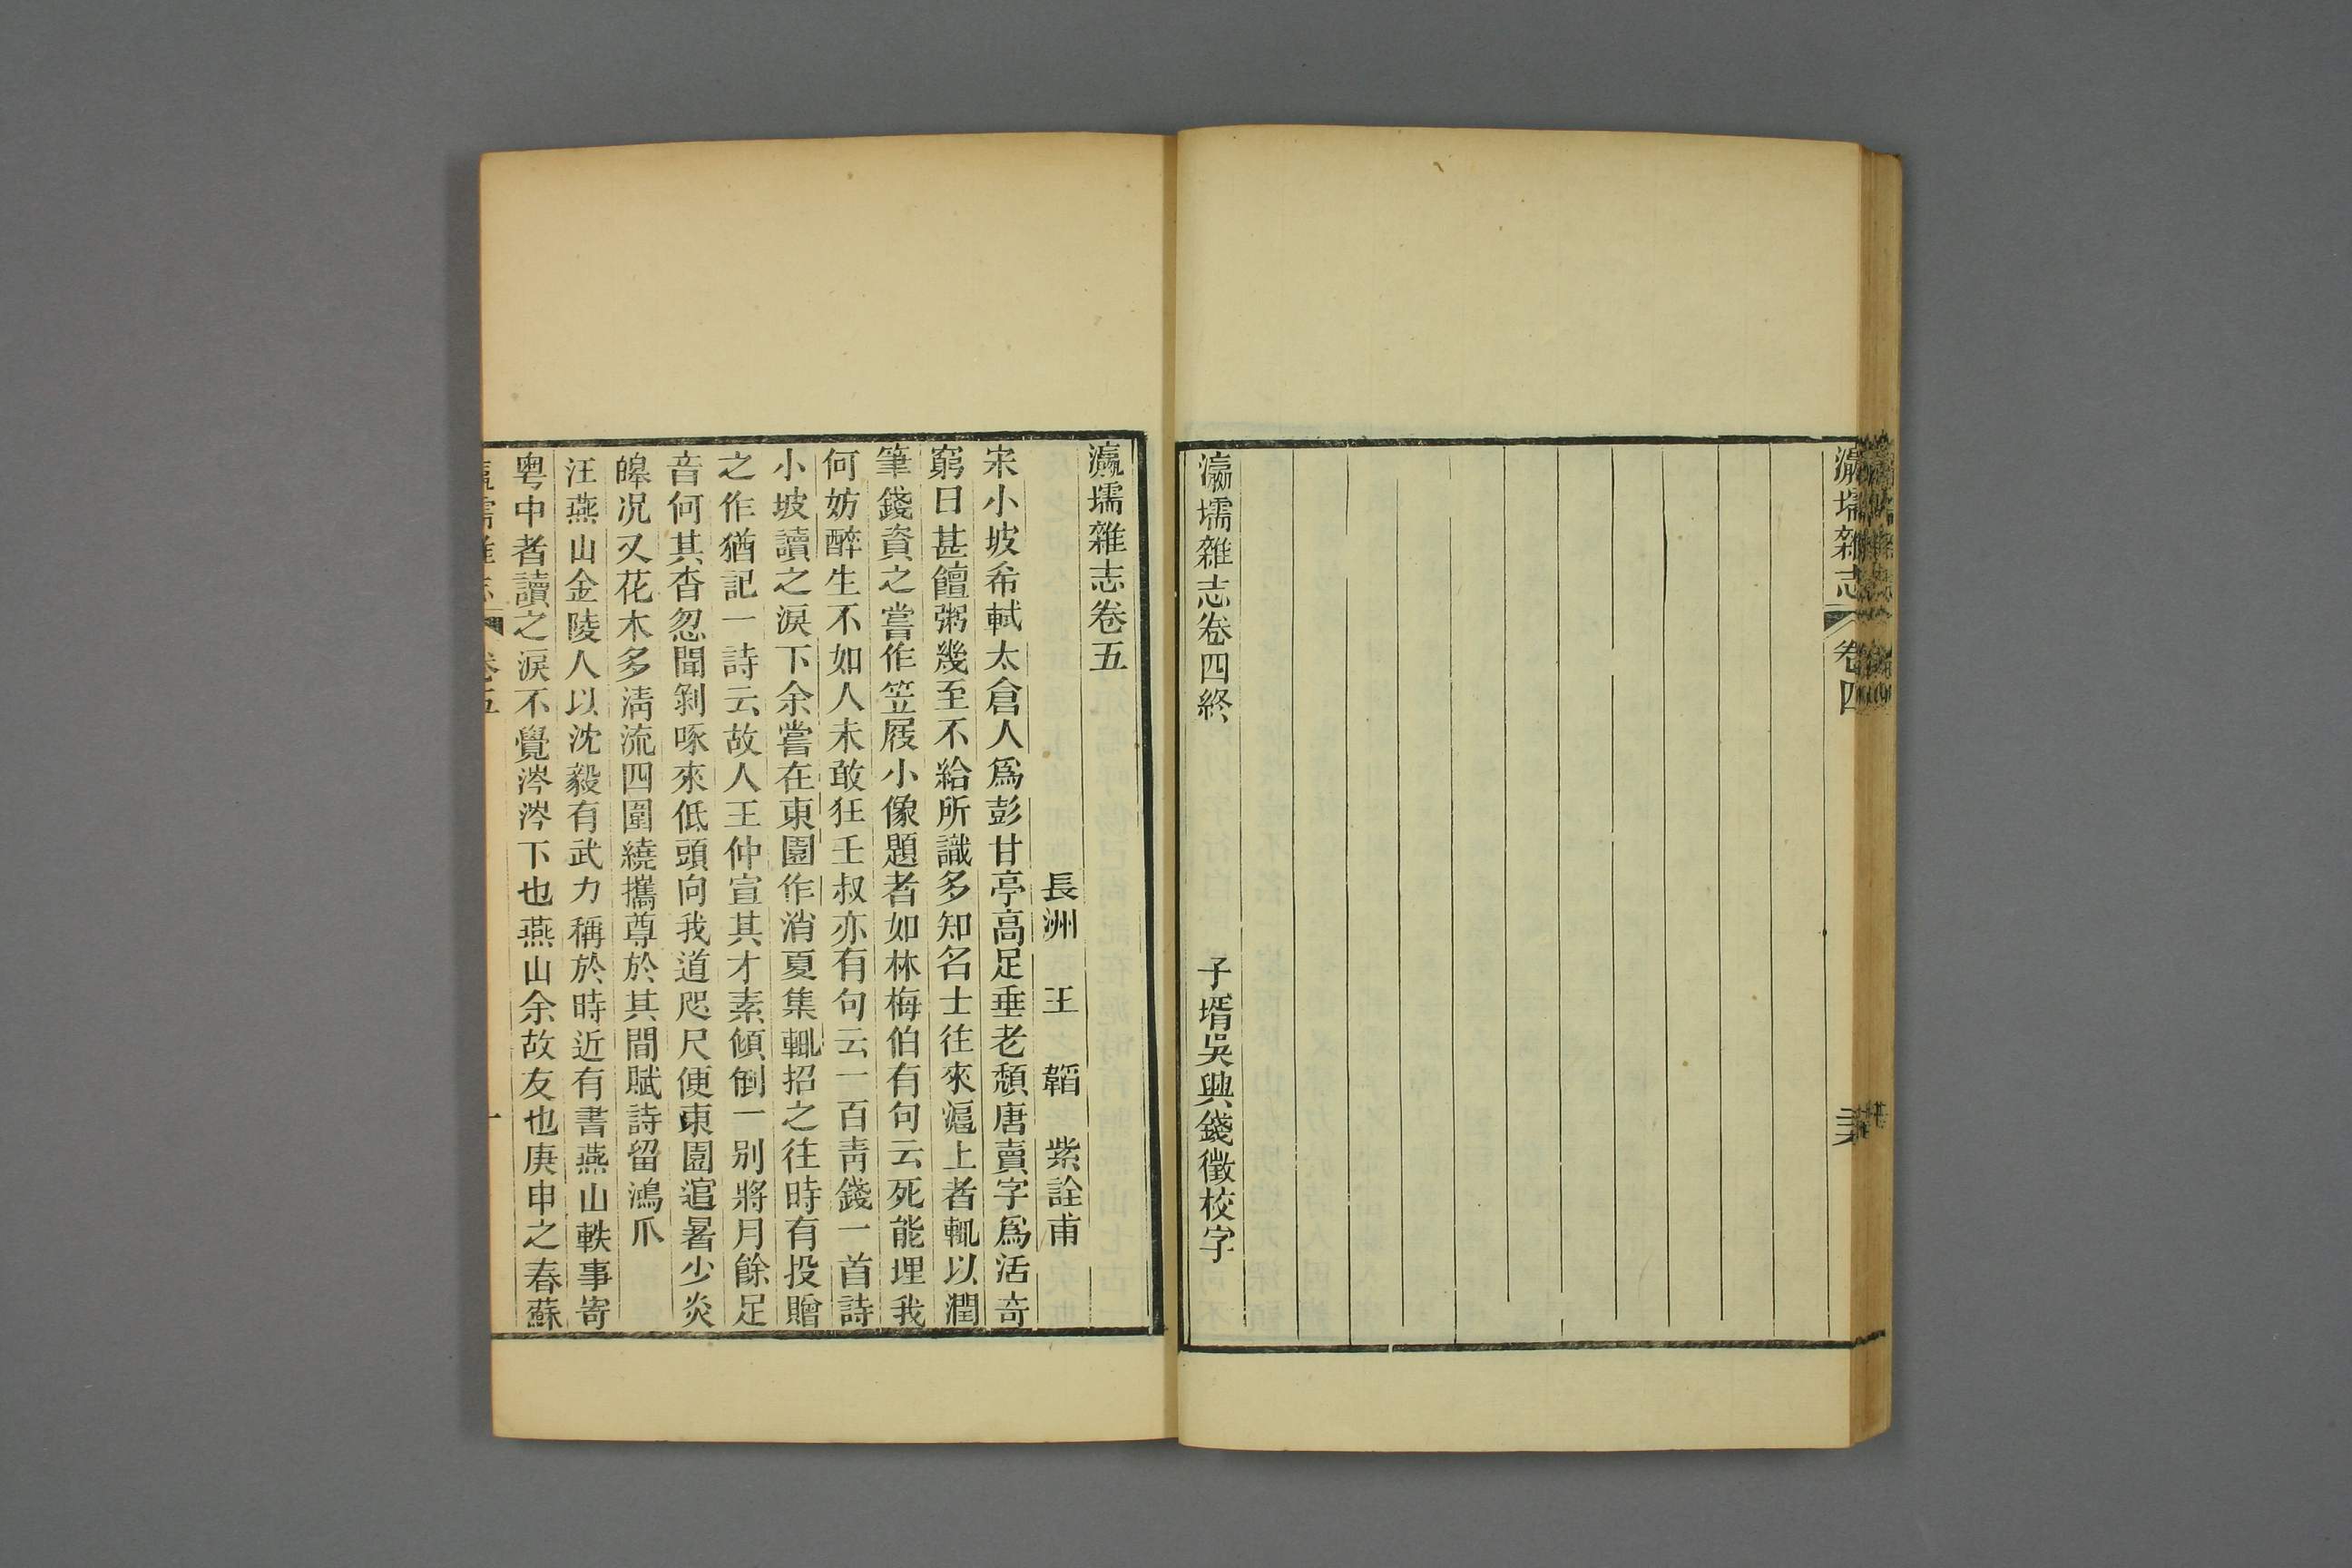 瀛壖雜志
卷四
瀛壖雜志卷四終
子壻吳興錢徵校字
瀛壖雜志卷五
長洲 王 韜 紫詮甫
宋小坡希軾太倉人爲彭甘亭高足垂老頹唐賣字爲活奇
窮日甚饘粥幾至不給所識多知名士往來滬上者輒以潤
筆錢資之嘗作笠屐小像題者如林梅伯有句云死能埋我
何妨醉生不如人未敢狂壬叔亦有句云一百靑錢一首詩
小坡讀之淚下余嘗在東園作消夏集輒招之往時有投贈
之作猶記一詩云故人王仲宣其才素傾倒一别將月餘足
音何其杳忽聞剝啄來低頭向我道咫尺便東園逭暑少炎
皞况又花木多淸流四圍繞攜尊於其間賦詩留鴻爪
汪燕山金陵人以沈毅有武力稱於時近有書燕山軼事寄
粵中者讀之淚不覺涔涔下也燕山余故友也庚申之春蘇
瀛壖雜志
卷五
一